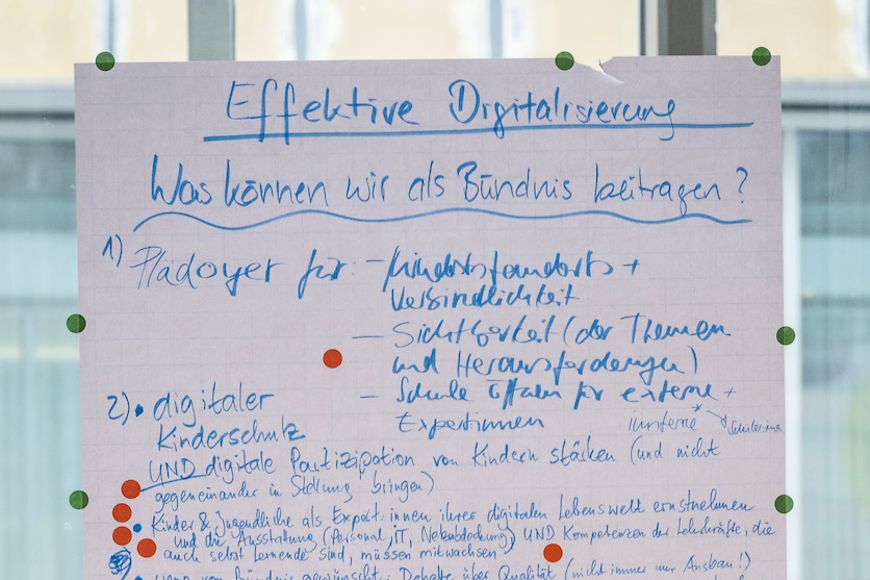 Effektive Digitalisierung
Was können wir als Bündnis beitragen?
1) Plädoyer für: - Mindeststandards +
Verbindlichkeit
- Sichtbarkeit (der Themen
und Herausforderungen)
- Schule öffnen für externe +
Expertinnen interne Schüler:innen
2) • digitaler
Kinderschutz
UND digitale Partizipation von Kindern stärken (und nicht
gegeneinander in Stellung bringen)
• Kinder & Jugendliche als Expert:innen ihrer digitalen Lebenswelt ernstnehmen
und die Ausstattung (Personal, IT, Netzabdeckung) UND Kompetenzen der Lehrkräfte, die
auch selbst Lernende sind, müssen mitwachsen
• von Bündnis gewünscht: Debatte über Qualität (nicht immer nur Ausbau!)